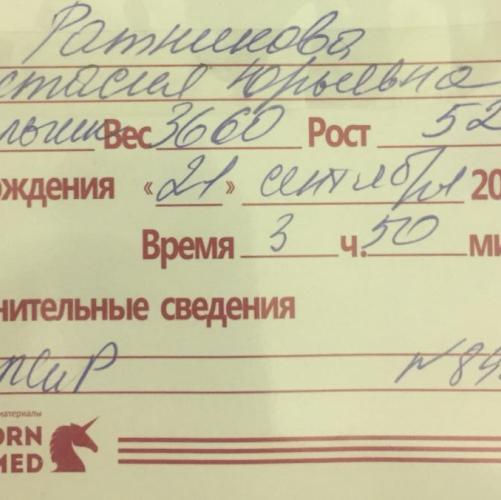 Ратникова
стасия Юрьевна
Вес 3660 Рост 52
ождения «21» сентября 20
Время 3 ч. 50 ми
нительные сведения
№ 84
материалы
ORN
MED